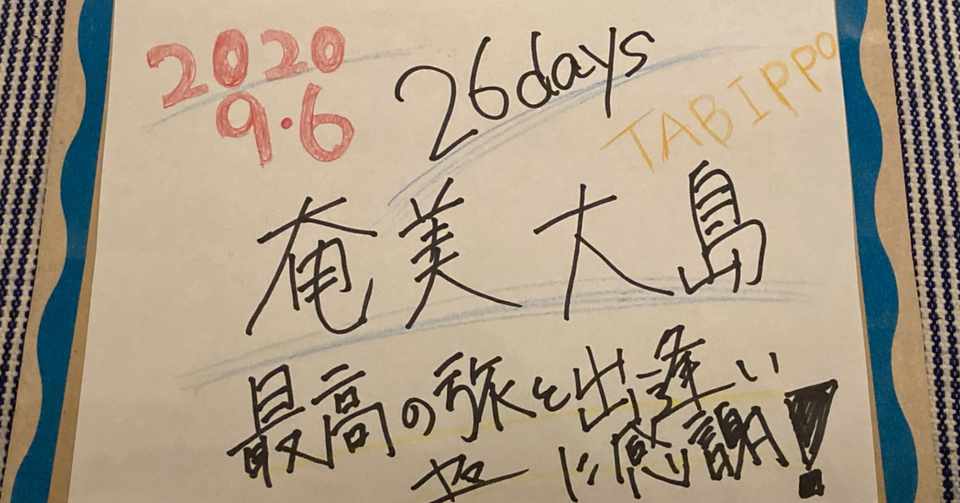 2020
9.6
26days
TABIPPO
奄美大島
最高の旅と出逢い
に感謝!